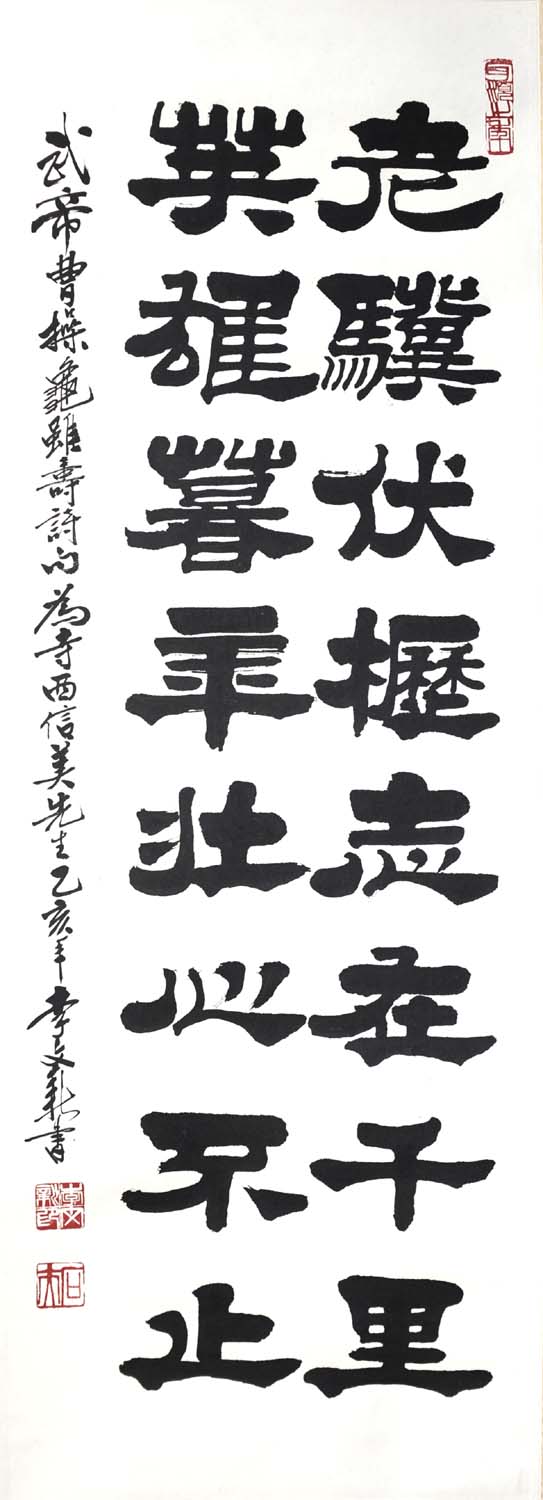 老驥伏櫪志在千里
英雄暮年壮心不止
武帝曹操龜雖壽詩句為寺西信美先生乙亥年李文書